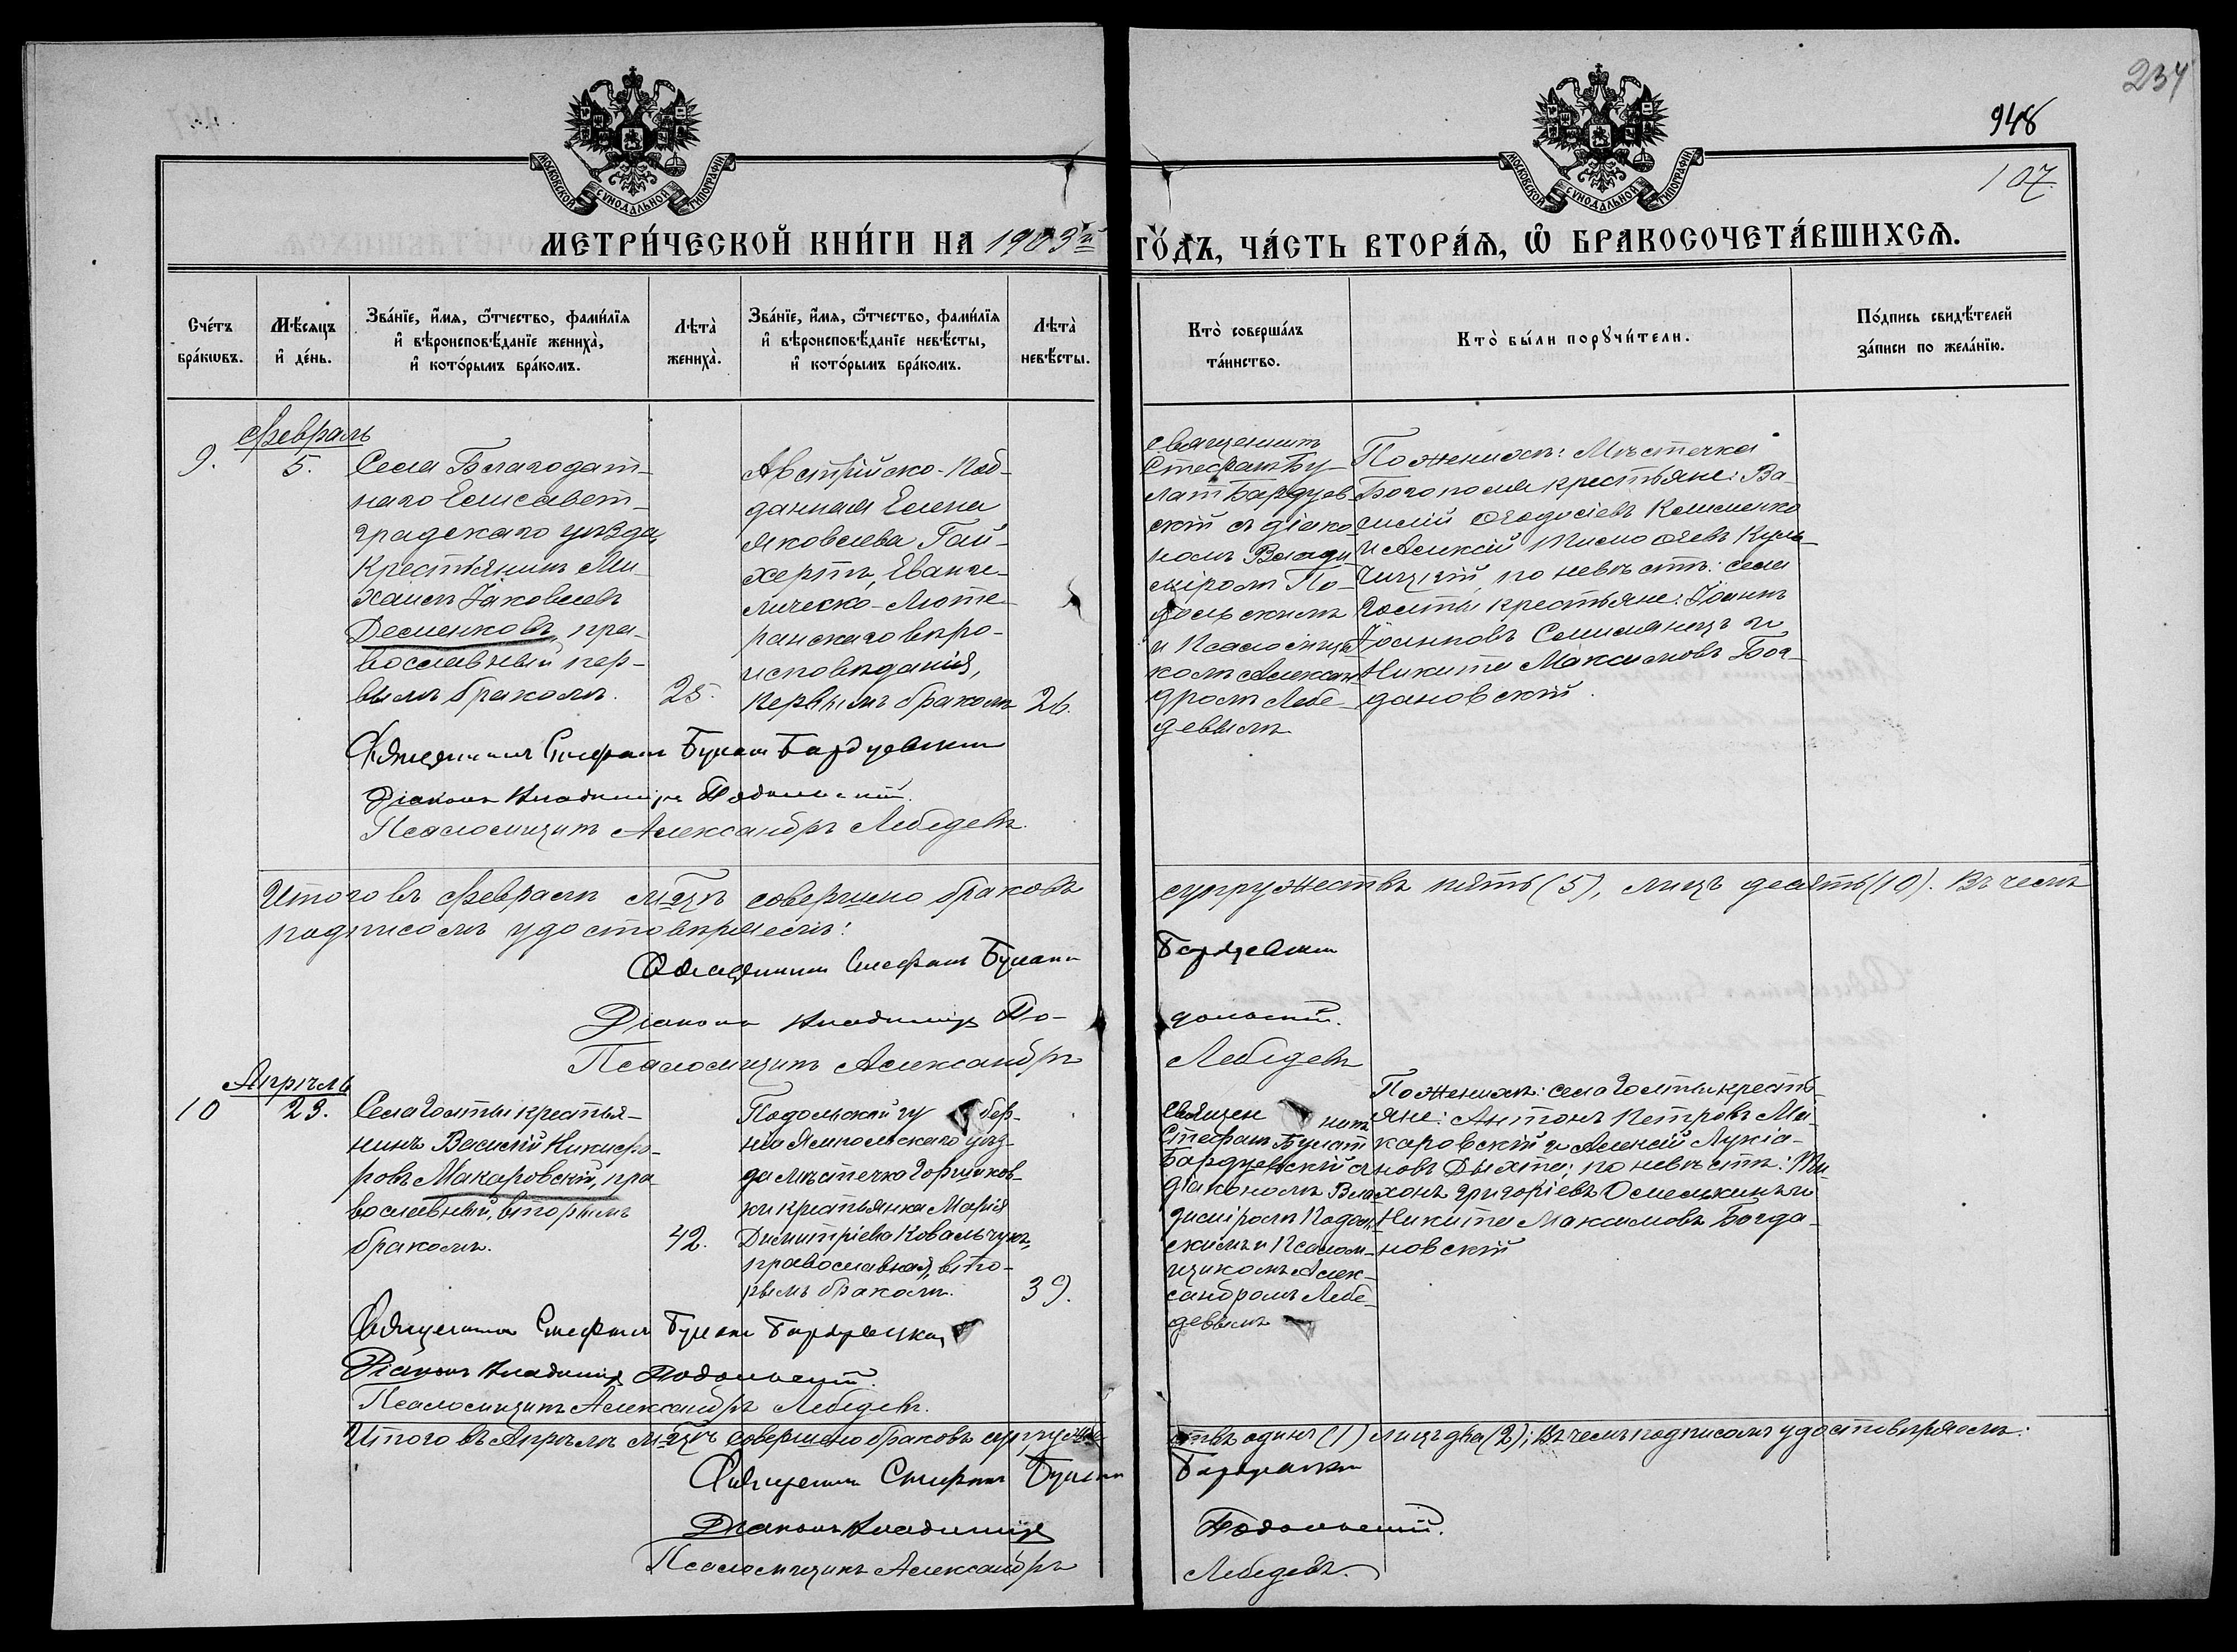 234
948
107.
МОСКОВСКОЙ СУНОДАЛЬНОЙ ТИПОГРАФІИ
МОСКОВСКОЙ СУНОДАЛЬНОЙ ТИПОГРАФІИ
МЕТРИ́ЧЕСКОЙ КНИ́ГИ НА 1903й ГО́ДЪ, ЧА́СТЬ ВТОРА́Ѧ, Ѡ҆ БРАКОСОЧЕТА́ВШИХСѦ.
Сче́тъ
бра́кѡвъ.
Мѣ́сяцъ
и҆ де́нь.
Зва́нїе, и҆́мѧ, ѻ҆́тчество, фами́лїѧ
и҆ вѣроисповѣ́данїе женихà,
и҆ кото́рымъ бра́комъ.
Лѣ́тà
женихà.
Зва́нїе, и҆́мѧ, ѻ҆́тчество, фами́лїѧ
и҆ вѣроисповѣ́данїе невѣ́сты,
и҆ кото́рымъ бра́комъ.
Лѣ́тà
невѣ́сты.
Ктò соверша́лъ
та́инство.
Ктò бы́ли порꙋчи́тели.
По́дпись свидѣ́телей
за́писи по жела́нїю.
Февраль
9.
5.
Села Благодат-
наго Елисавет-
градскаго уѣзда,
крестьянинъ Ми-
хаилъ Іаковлевъ
Десненковъ, пра-
вославный пер-
вымъ бракомъ.
25.
Австрійско-Под-
данная Елена
Яковлева Гай-
хертъ, Еванге-
лическо-Люте-
ранскаго вѣро-
исповѣданія,
первымъ бракомъ
26.
Священникъ
Стефанъ Бу-
латъ Бардуев-
скій съ діако-
номъ Влади-
міромъ По-
дольскимъ
и Псаломщи-
комъ Алексан-
дромъ Лебе-
девымъ
По женихѣ: Мѣстечка
Богополя крестьяне: Ва-
силій Ѳеодосіевъ
и Алексій
по невѣстѣ: села
Голты крестьяне: Іоаннъ
и
Никита Максимовъ Бог-
дановскій.
Священникъ Стефанъ Булатъ Бардуевскій
Діаконъ Владиміръ Подольскій.
Псаломщикъ Александръ Лебедевъ.
Итого въ Февралѣ м-цѣ совершено браковъ супружествъ пять (5), лицъ десять (10). Въ чемъ
подписомъ удостовѣряемъ:
Священникъ Стефанъ Булатъ Бардуевскій
Діаконъ Владиміръ По-дольскій.
Псаломщикъ Александръ Лебедевъ
Апрѣль
10
23.
Села Голты крестья-
нинъ Василій Никифо-
ровъ Макаровскій, пра-
вославный, вторымъ
бракомъ.
42.
Подольской губер-
ніи Ямпольскаго уѣз-
да мѣстечко Горшков-
ки крестьянка Марія
Димитріева Ковальчукъ,
православная, вто-
рымъ бракомъ.
39.
Священникъ
Стефанъ Булатъ
Бардуевскій съ
діакономъ Вла-
диміромъ Подоль-
скимъ и Псалом-
щикомъ Алек-
сандромъ Лебе-
девымъ
По женихѣ: села Голты кресть-
яне: Антонъ Петровъ Ма-
каровскій и Алексій Лукіа-
новъ Дыхта; по невѣстѣ: Ти-
хонъ Григоріевъ Омелькинъ и
Никита Максимовъ Богда-
новскій
Священникъ Стефанъ Булатъ Бардуевскій
Діаконъ Владиміръ Подольскій.
Псаломщикъ Александръ Лебедевъ.
Итого въ Апрѣлѣ м-цѣ совершено браковъ супружествъ одинъ (1) лицъ два (2); въ чемъ подписомъ удостовѣряемъ:
Священникъ Стефанъ Булатъ Бардуевскій
Діаконъ Владиміръ Подольскій.
Псаломщикъ Александръ Лебедевъ.